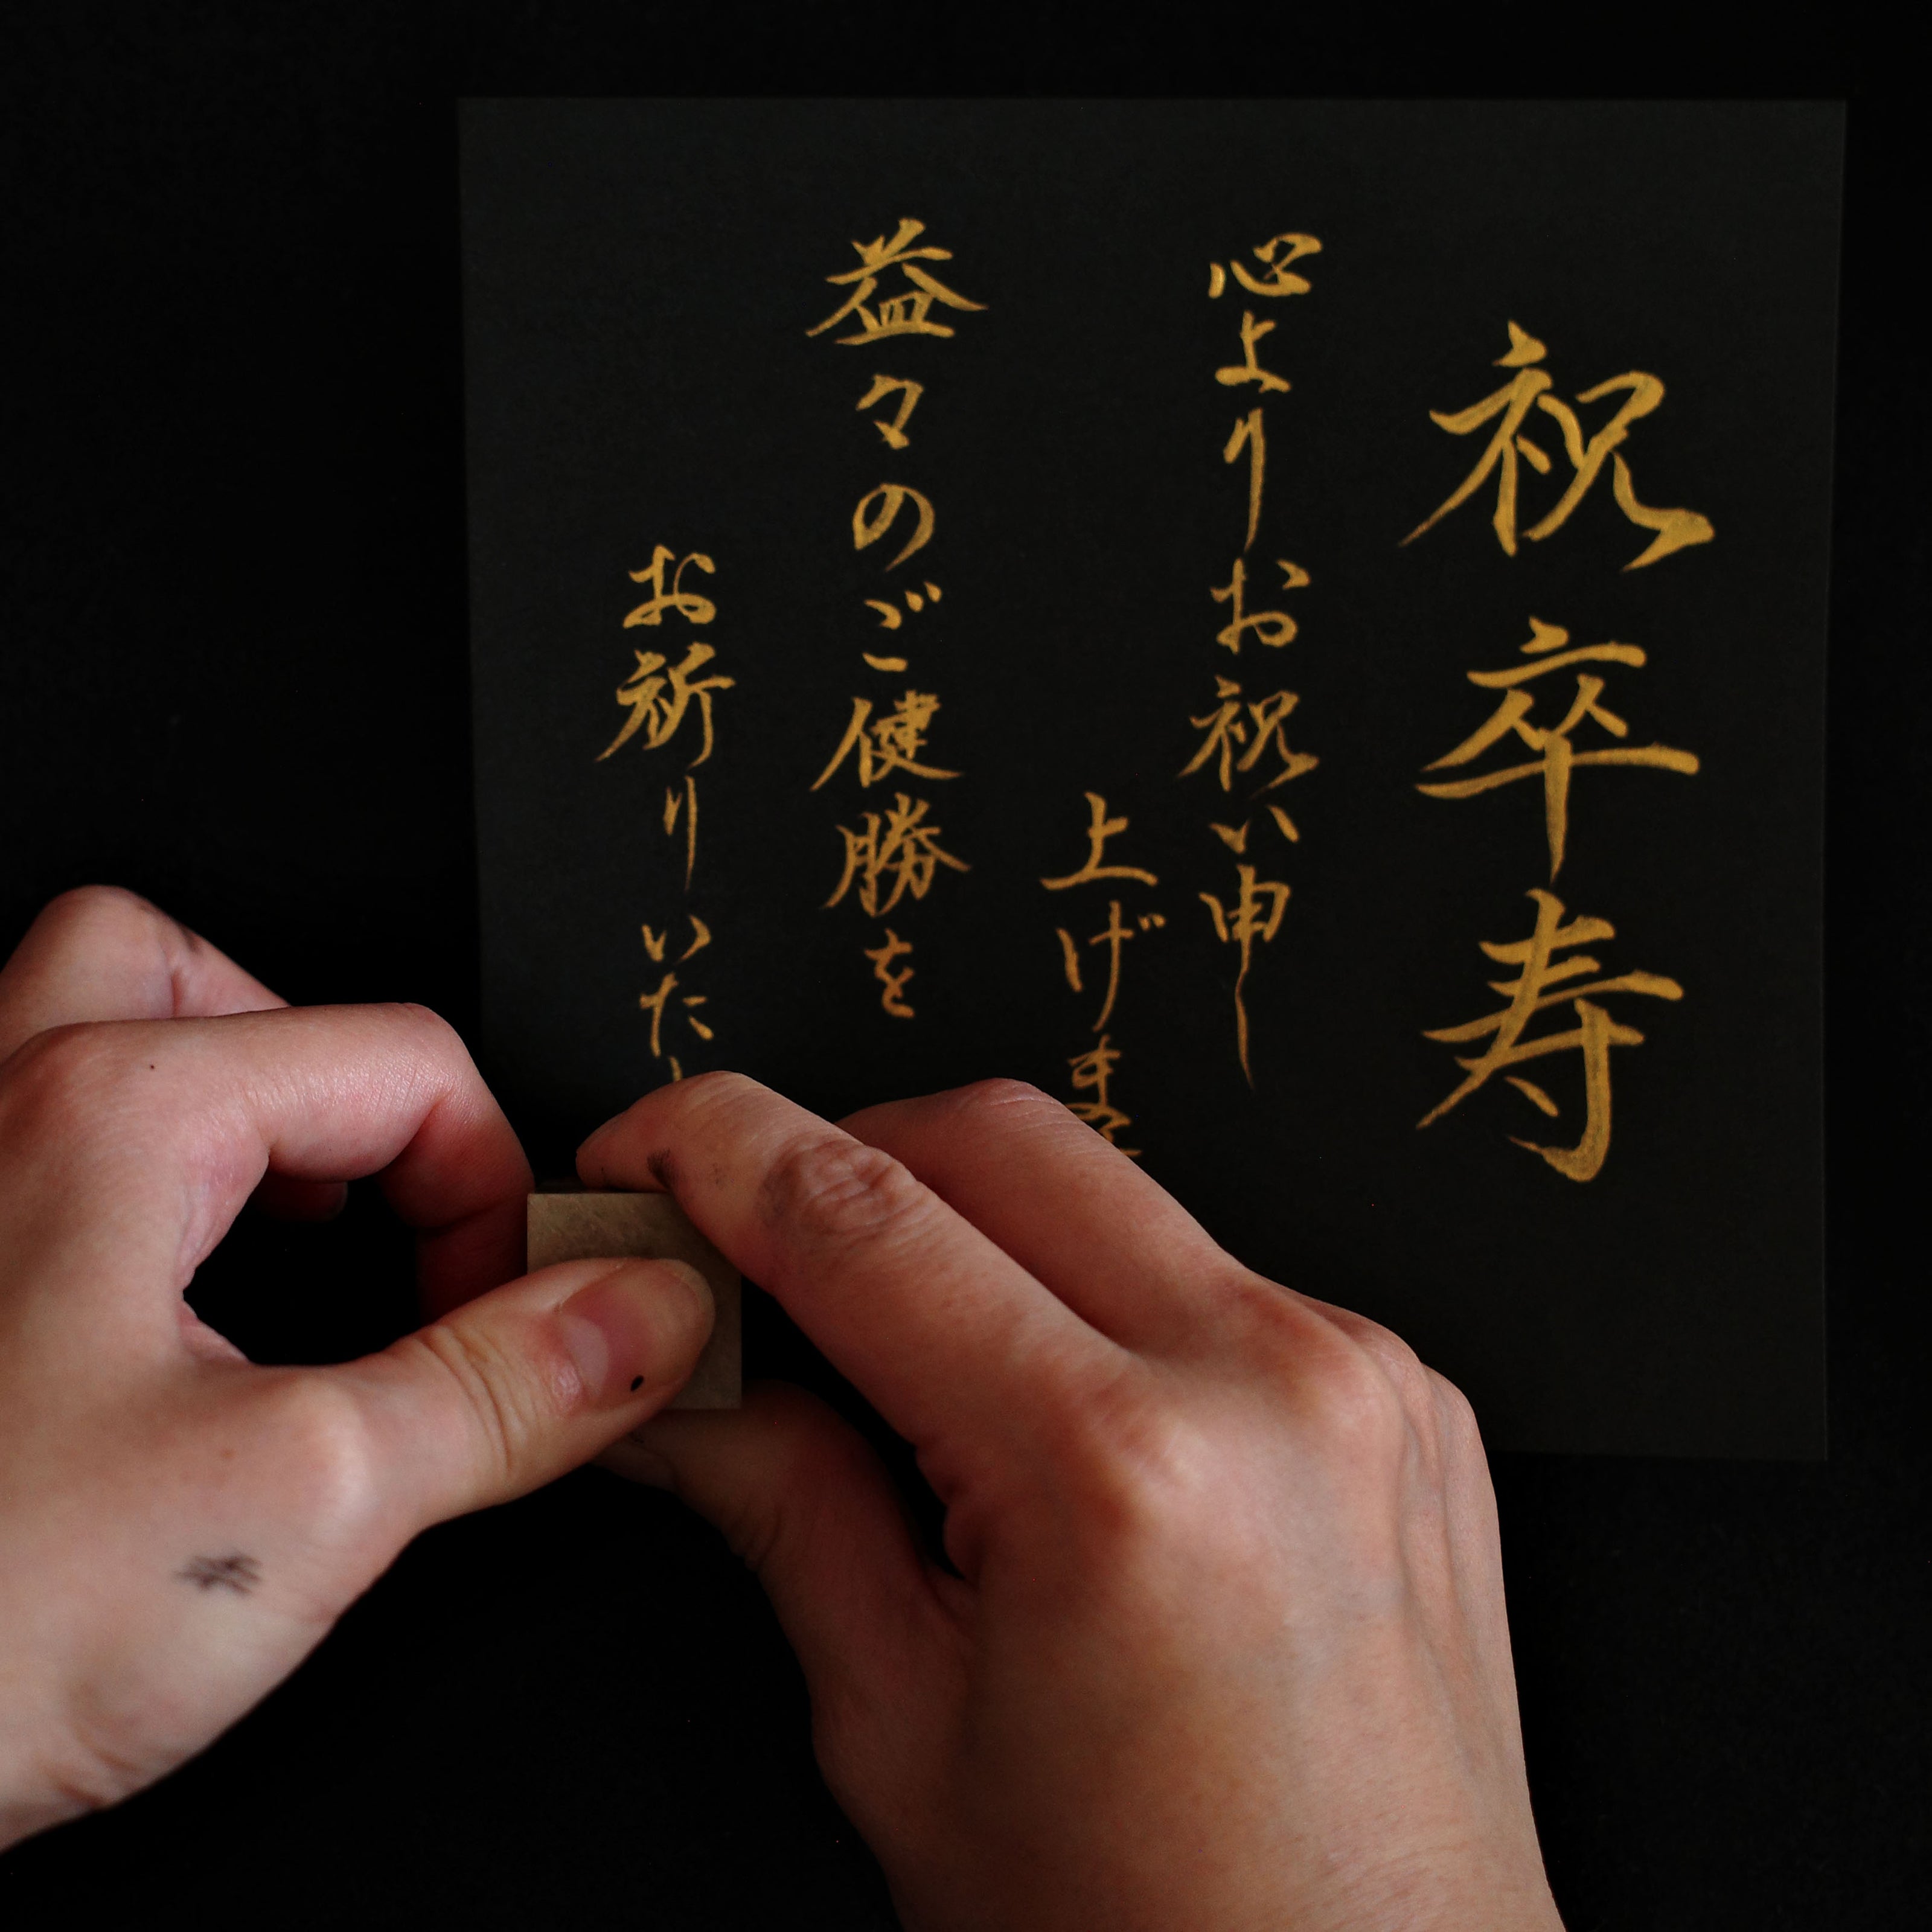 祝卒寿
心よりお祝い申し
上げます
益々のご健勝を
お祈りいたし